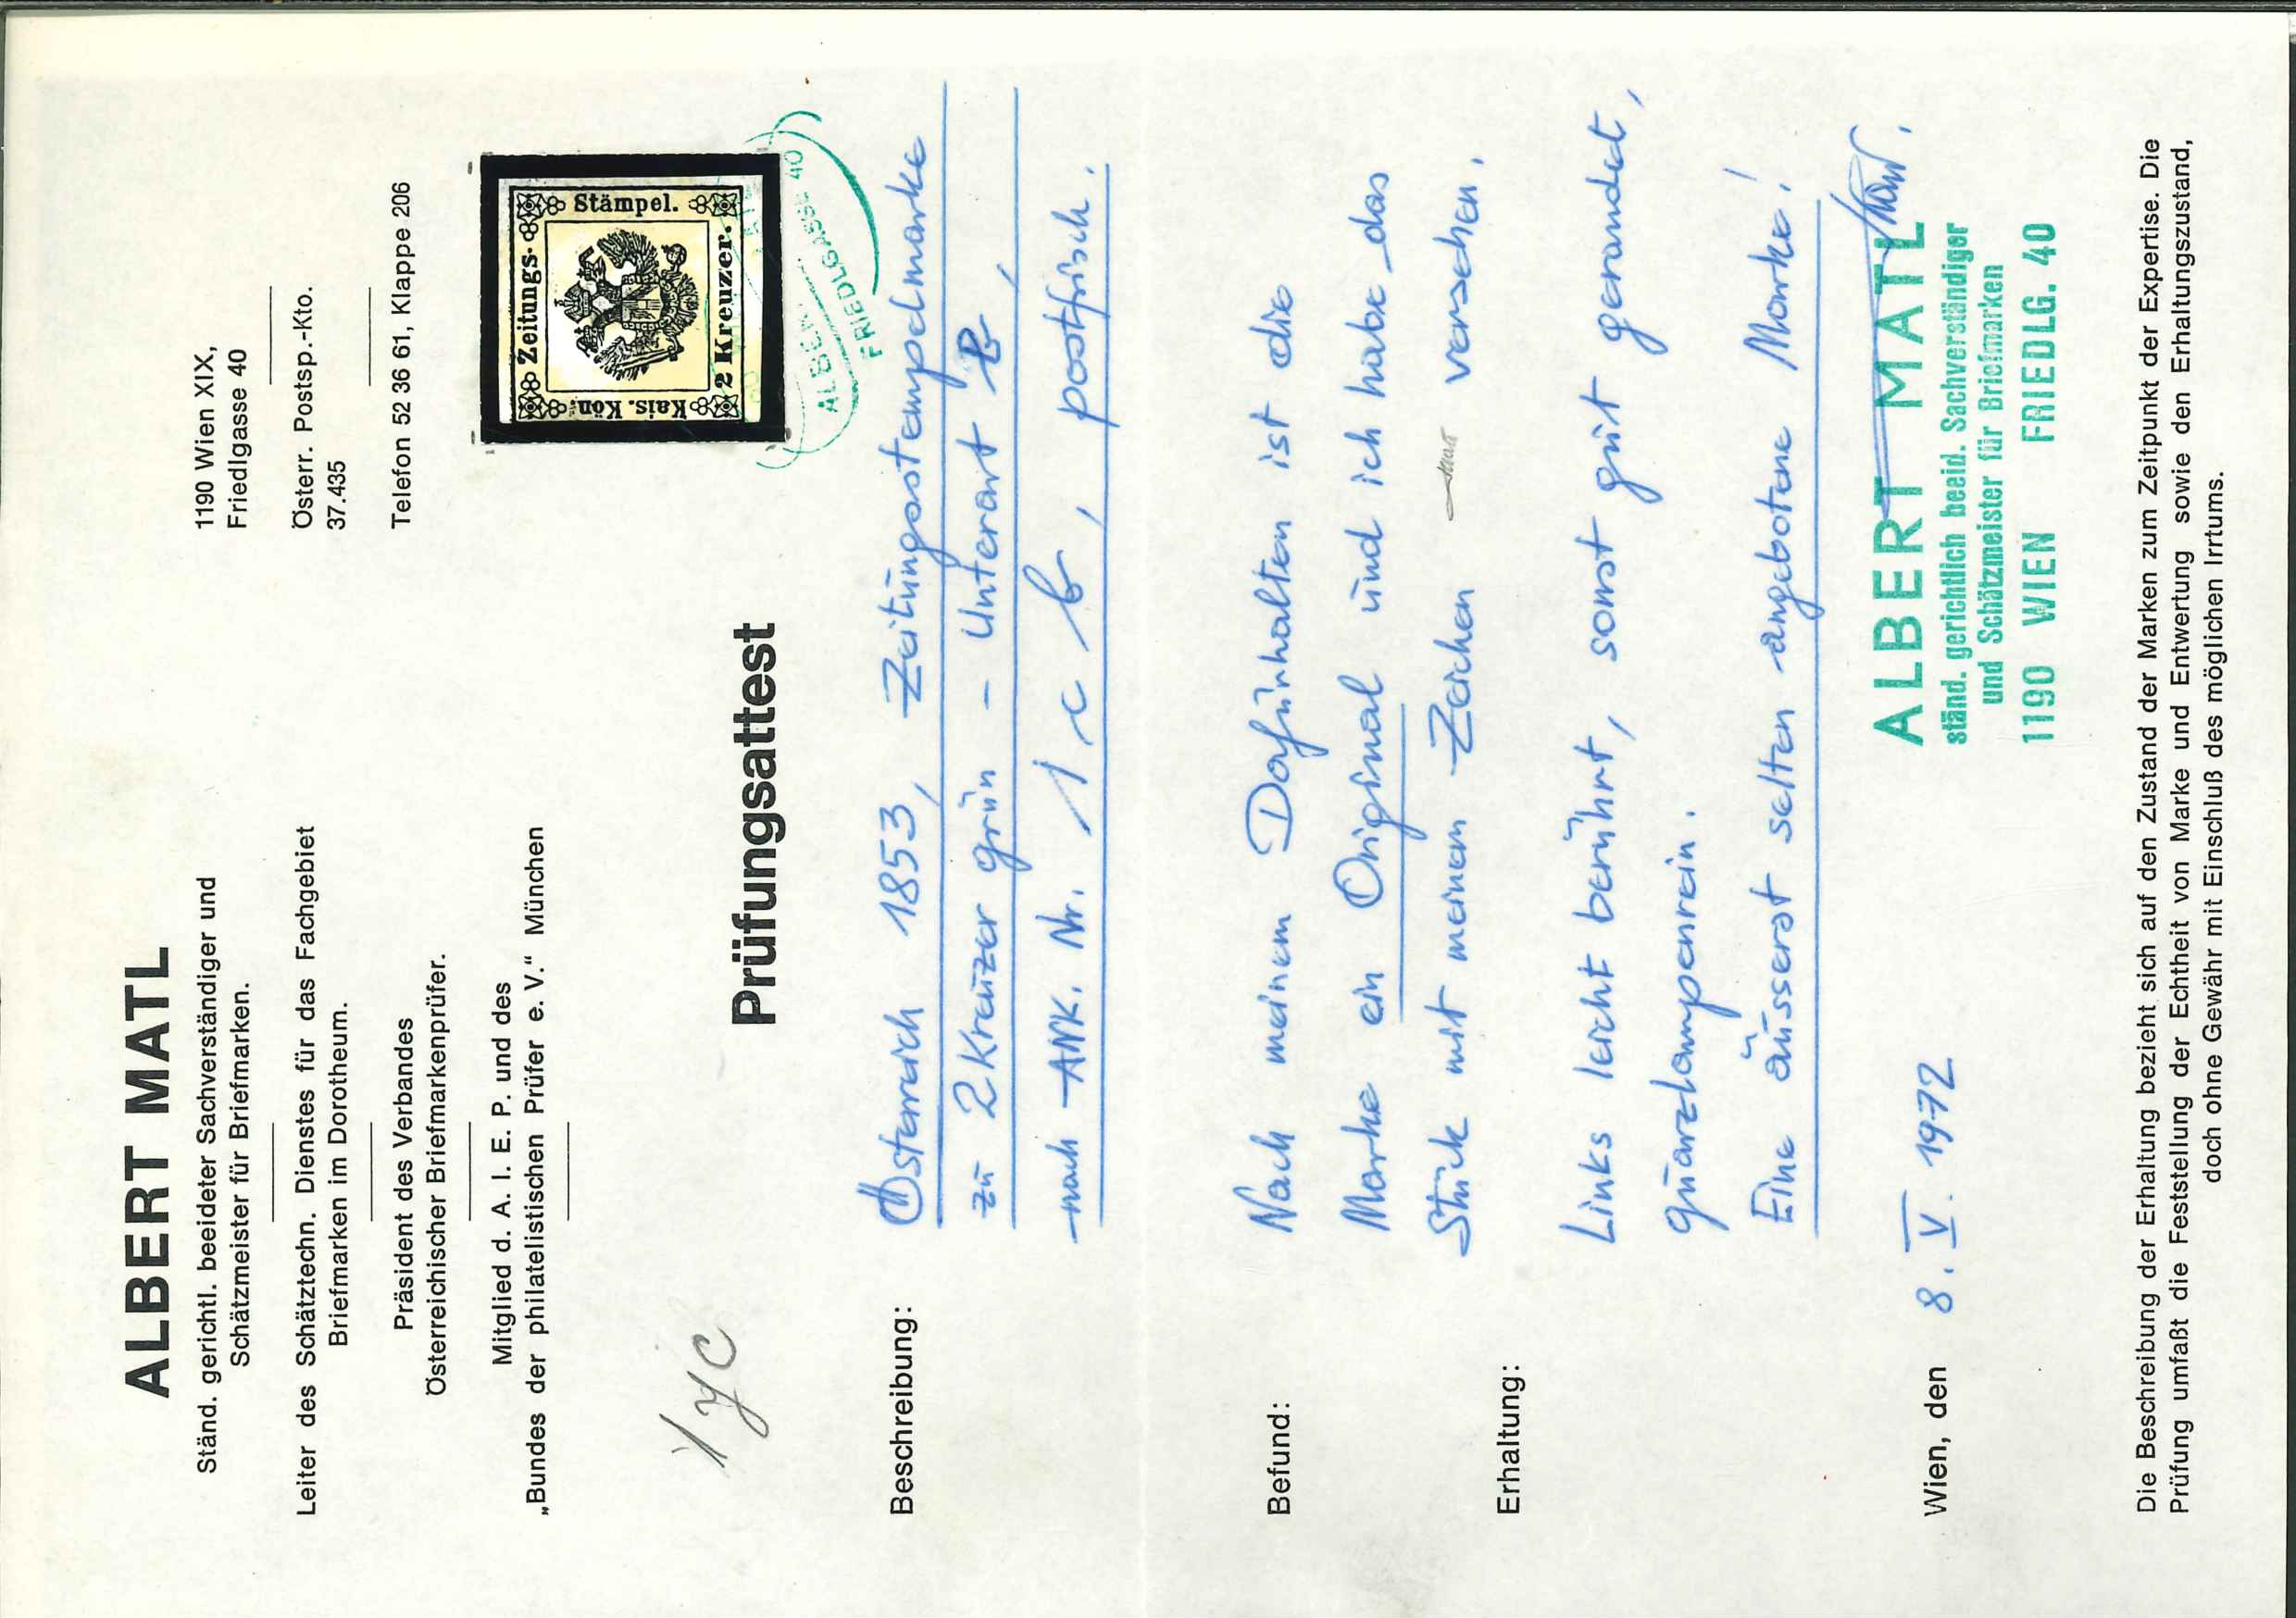 ALBERT MATL
Ständ. gerichtl. beeideter Sachverständiger und
Schätzmeister für Briefmarken.
Leiter des Schätztechn. Dienstes für das Fachgebiet
Briefmarken im Dorotheum.
Präsident des Verbandes
Österreichischer Briefmarkenprüfer.
Mitglied d. A. I. E. P. und des
„Bundes der philatelistischen Prüfer e. V." München
1190 Wien XIX,
Friedlgasse 40
Österr. Postsp.-Kto.
37.435
Telefon 52 36 61, Klappe 206
Zeitungs-
Stämpel.
Kais. Kön.
2 Kreuzer.
ALBERT
FRIEDLGASSE 40
1yc
Prüfungsattest
Beschreibung:
Österreich 1853, Zeitungsstempelmarke
zu 2 Kreuzer grün - Unterart B,
nach ANK. Nr. 1 c b, postfrisch.
Befund:
Nach meinem Dafürhalten ist die
Marke ein Original und ich habe das
Stück mit meinem Zeichen versehen.
Erhaltung:
Links leicht berührt, sonst gut gerandet,
quarzlampenrein.
Eine äusserst selten angebotene Marke!
Wien, den 8. V. 1972
ALBERT MATL
ständ. gerichtlich beeid. Sachverständiger
und Schätzmeister für Briefmarken
1190 WIEN FRIEDLG. 40
Die Beschreibung der Erhaltung bezieht sich auf den Zustand der Marken zum Zeitpunkt der Expertise. Die
Prüfung umfaßt die Feststellung der Echtheit von Marke und Entwertung sowie den Erhaltungszustand,
doch ohne Gewähr mit Einschluß des möglichen Irrtums.